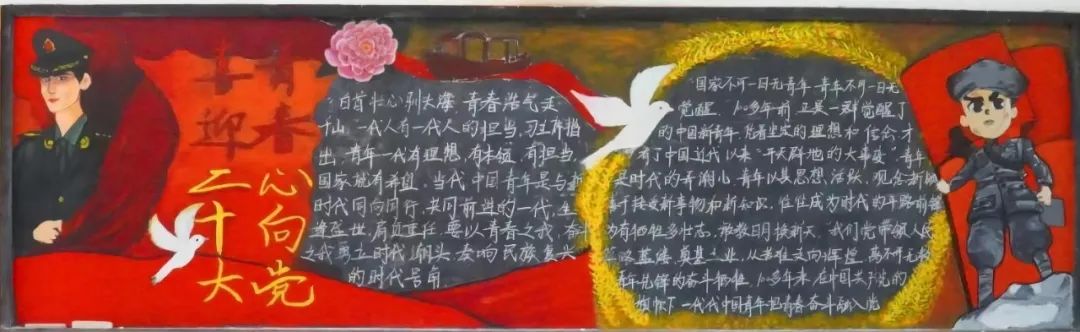 喜迎二十大
青春心向党
白首壮心驯大海，青春浩气走
千山。一代人有一代人的担当，习主席指
出，青年一代有理想，有本领，有担当，
国家就有希望。当代中国青年是与新
时代同向同行、共同前进的一代，生
逢盛世，肩负重任，要以青春之我，奋斗
之我勇立时代潮头，奏响民族复兴
的时代号角。
“国家不可一日无青年，青年不可一日无
觉醒”，100多年前，正是一群觉醒了
的中国新青年，凭着坚定的理想和信念才
有了中国近代以来“开天辟地的大事变”。青年
是时代的弄潮儿，青年以其思想活跃、观念新
于接受新事物和新知识，往往成为时代的开路前锋
为有牺牲多壮志，敢教日月换新天，我们党带领人民
筚路蓝缕、奠基立业，从苦难走向辉煌，离不开无数
青年先锋的奋斗牺牲，100多年来，在中国共产党的
旗帜下，一代代中国青年把青春奋斗融入党